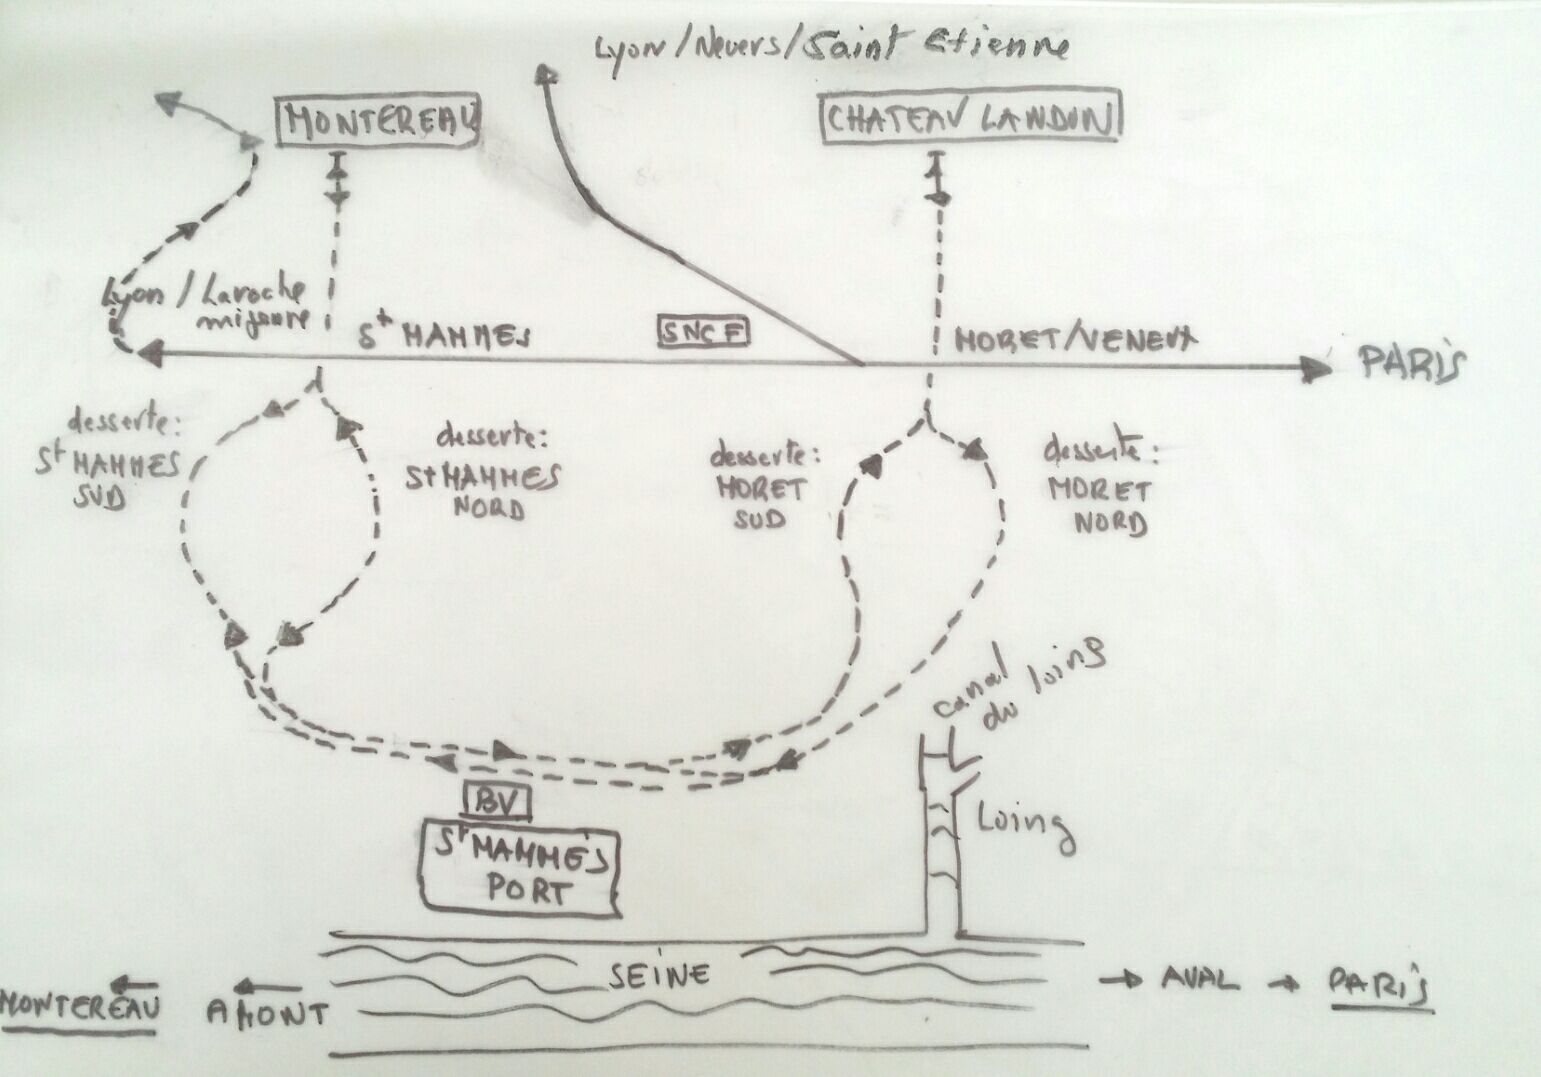 Lyon/Nevers/Saint Etienne
MONTEREAU
CHATEAU LANDON
Lyon / Laroche
migenne
St MAMMES
SNCF
MORET/VENEUX
PARIS
desserte:
St MAMMES
SUD
desserte:
St MAMMES
NORD
desserte:
MORET
SUD
desserte:
MORET
NORD
canal
du loing
BV
Loing
St MAMMÈS
PORT
SEINE
MONTEREAU
AMONT
AVAL
PARIS